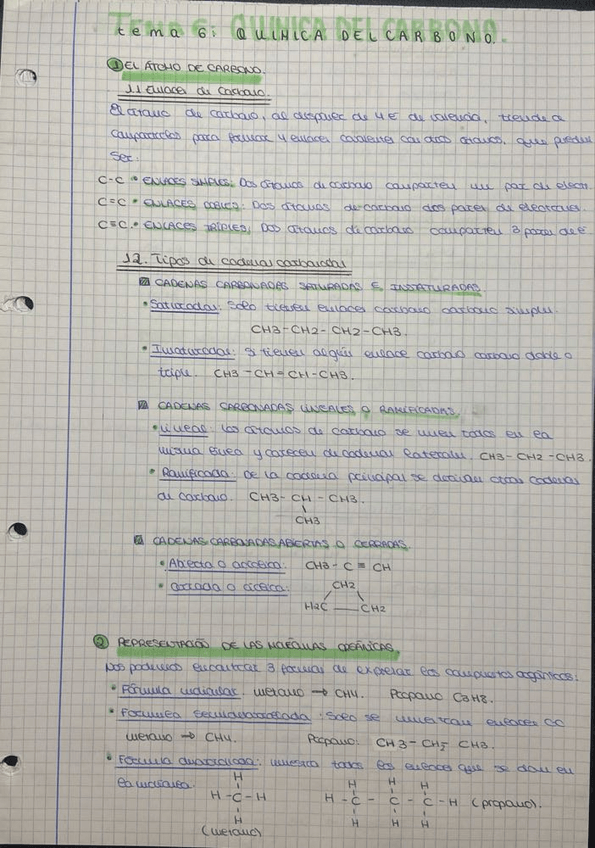 tema 6: QUIMICA DEL CARBONO.
① EL ÁTOMO DE CARBONO.
1.1 Enlaces de carbono.
El átomo de carbono, al disponer de 4 E de valencia, tiende a
compartirlos para formar 4 enlaces covalentes con otros átomos, que pueden
ser:
C-C • ENLACES SIMPLES: Dos átomos de carbono comparten un par de electr.
C=C • ENLACES DOBLES: Dos átomos de carbono dos pares de electrones.
C≡C • ENLACES TRIPLES: Dos átomos de carbono comparten 3 pares de E
1.2. Tipos de cadenas carbonadas
CADENAS CARBONADAS SATURADAS E INSATURADAS
• Saturadas: Solo tienen enlaces carbono carbono simple.
CH3-CH2-CH2-CH3.
• Insaturadas: Si tienen algún enlace carbono carbono doble o
triple. CH3-CH=CH-CH3.
CADENAS CARBONADAS LINEALES O RAMIFICADAS
• Lineal: los átomos de carbono se unen todos en la
misma línea y carecen de cadenas laterales. CH3-CH2-CH3
• Ramificada: De la cadena principal se derivan otras cadenas
de carbono. CH3-CH-CH3.
CH3
CADENAS CARBONADAS ABIERTAS O CERRADAS.
• Abierta o acíclica: CH3-C≡CH
CH2
• Cerrada o cíclica:
H2C CH2
② REPRESENTACIÓN DE LAS MOLÉCULAS ORGÁNICAS.
Nos podemos encontrar 3 formas de expresar los compuestos orgánicos:
• Fórmula molecular: metano → CH4. Propano C3H8.
• Formula semidesarrollada: Solo se muestran enlaces CC
metano → CH4. Propano: CH3-CH2-CH3.
• Fórmula desarrollada: muestra todos los enlaces que se dan en
la molécula.
H H H H
H-C-H H-C-C-C-H (propano).
H H H H
(metano)